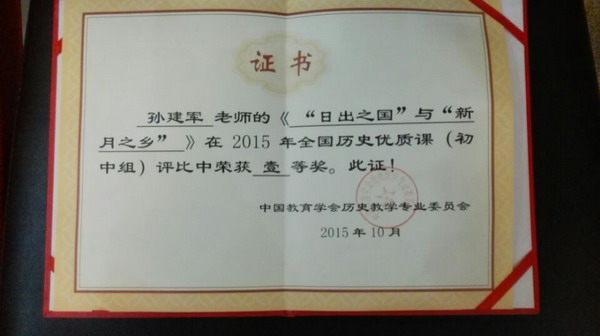 证书
孙建军 老师的《 “日出之国”与“新
月之乡” 》在 2015 年全国历史优质课（初
中组）评比中荣获 壹 等奖。此证！
中国教育学会历史教学专业委员会
2015 年 10 月